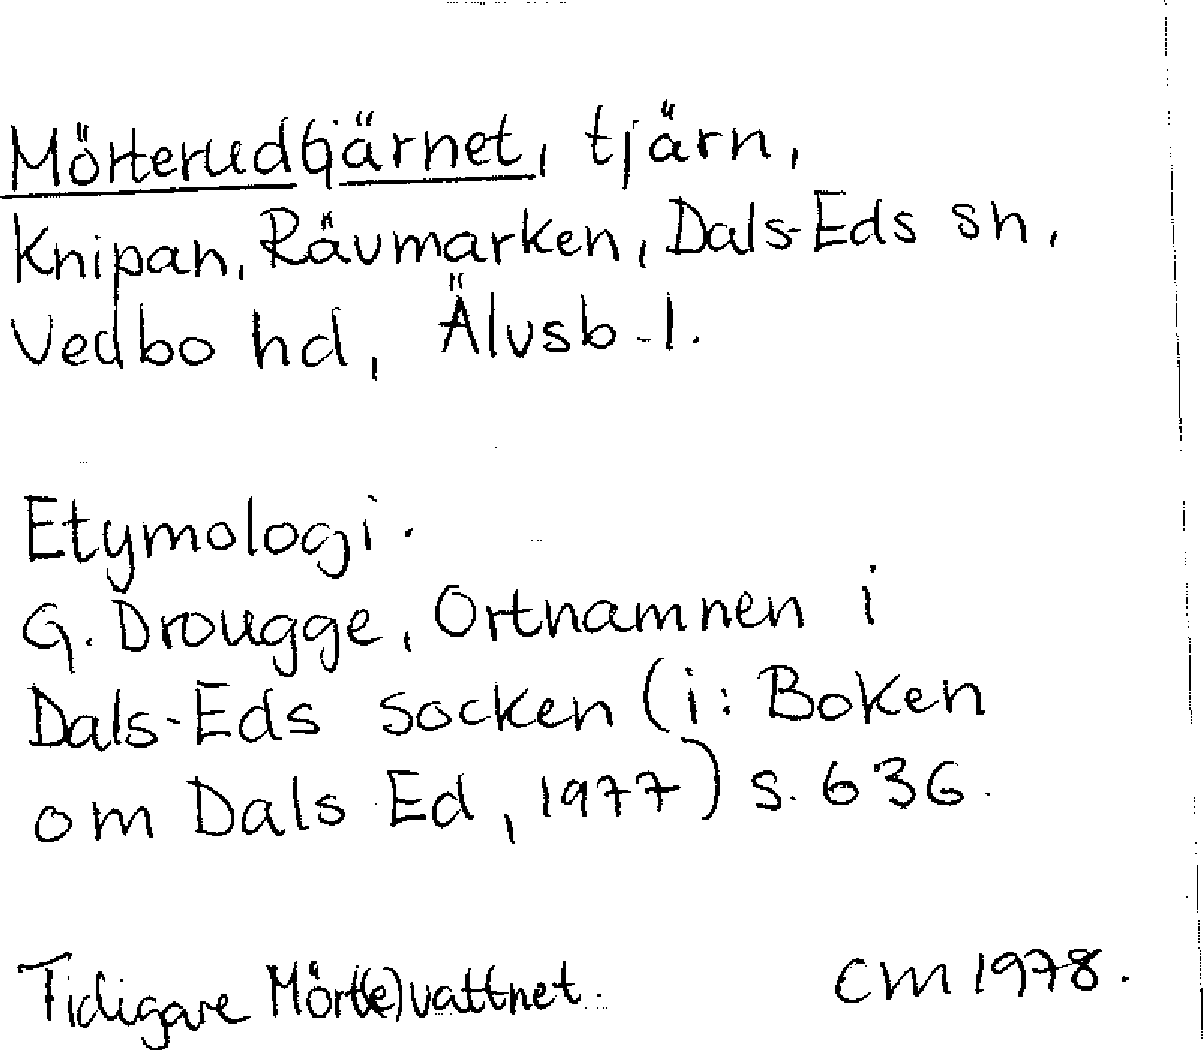 Mörterudtjärnet, tjärn,
Knipan, Rävmarken, Dals-Eds sn,
Vedbo hd, Älvsb. l.
Etymologi.
G. Drougge, Ortnamnen i
Dals-Eds socken (i: Boken
om Dals Ed, 1977) s. 636.
Tidigare Mört(e)vattnet.
CM 1978.